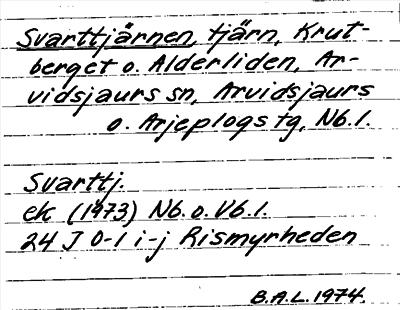 Svarttjärnen, tjärn, Krut-
berget o. Alderliden, Ar-
vidsjaurs sn, Arvidsjaurs
o. Arjeplogs tg, Nb. l.
Svarttj.
ek (1973) Nb. o. Vb. l.
24 J 0-1 i-j Rismyrheden
B.A.L. 1974.